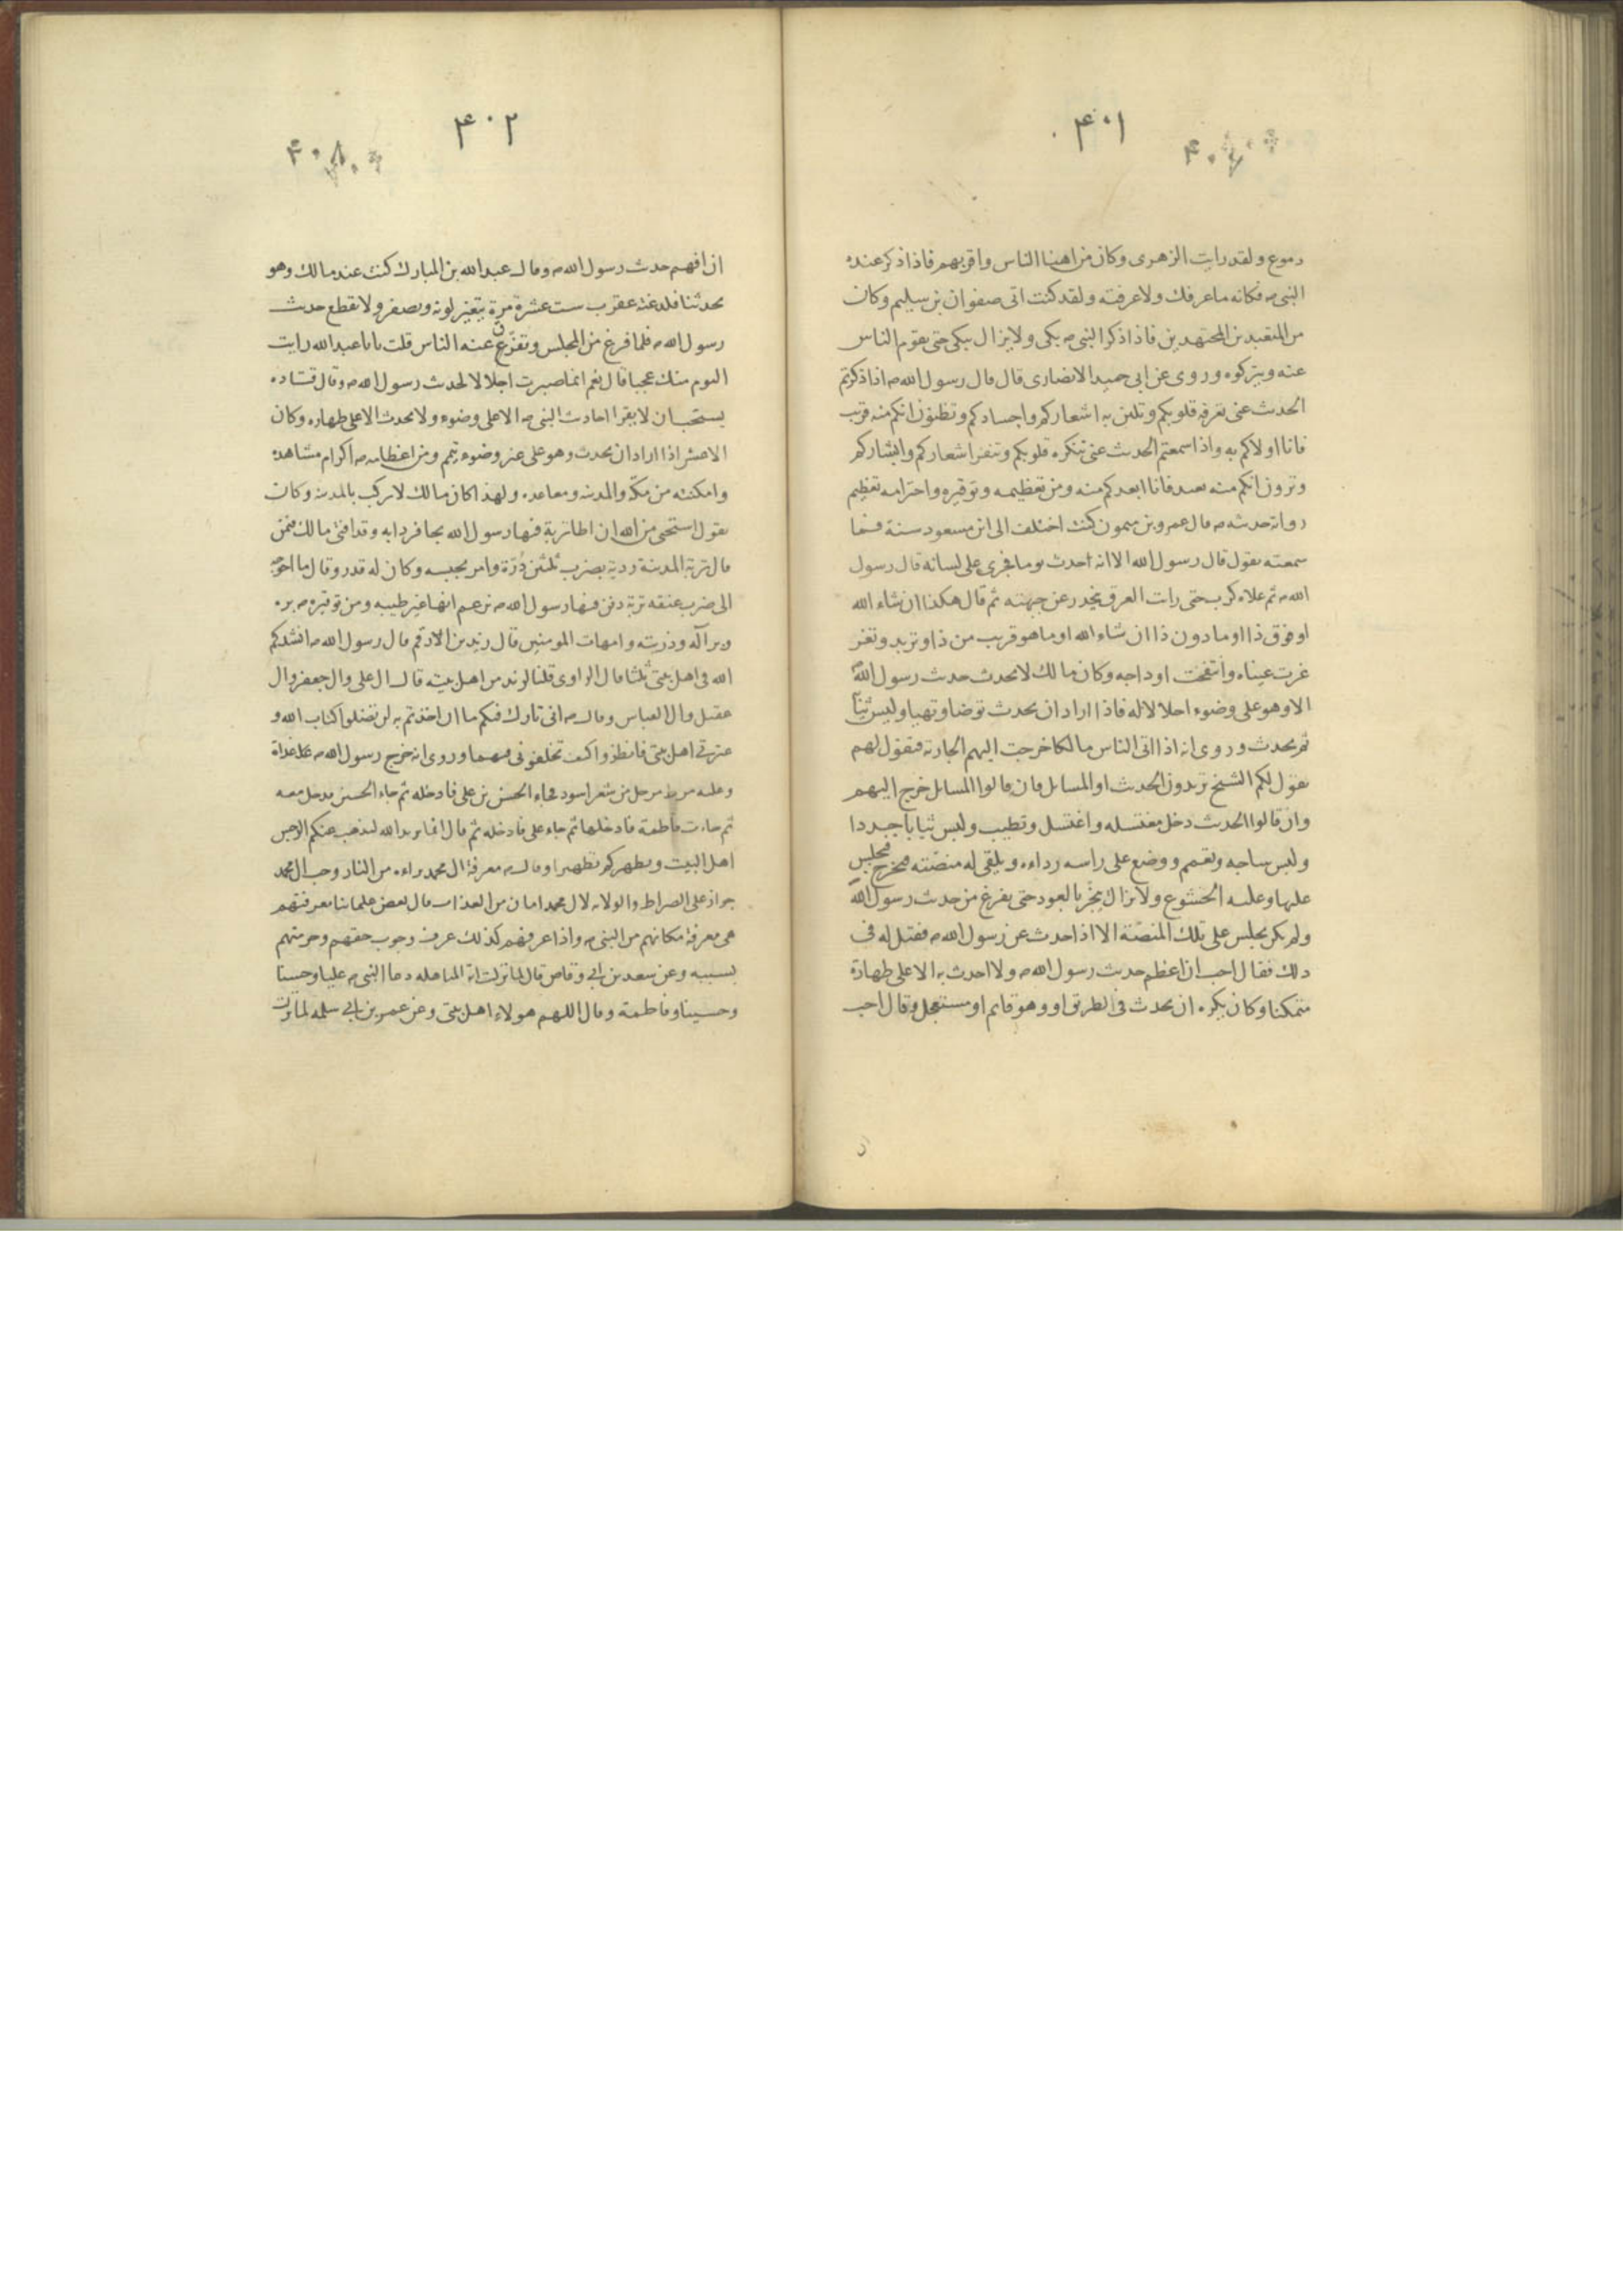 ۴۰۱
دموع ولقد رايت الزهرى وكان من اهنا الناس واقربهم فاذا ذكر عنده
النبى ص فكانه ما عرفك ولا عرفته ولقد كنت اتى صفوان بن سليم وكان
من المتعبدين المجتهدين فاذا ذكر النبى ص بكى ولا يزال يبكى حتى يقوم الناس
عنه ويتركوه وروى عن ابى حميد الانصارى قال قال رسول الله ص اذا ذكرتم
الحدث عنى تعرفه قلوبكم وتلين به اشعاركم واجسادكم وتظنون انكم منه قريب
فانا اولاكم به واذا سمعتم الحدث عنى تنكره قلوبكم وتنفر اشعاركم وابشاركم
وترون انكم منه بعيد فانا ابعدكم منه ومن تعظيمه وتوقيره واحترامه تعظيم
رواية حدثه ص قال عمرو بن ميمون كنت اختلف الى ابن مسعود سنة فما
سمعته يقول قال رسول الله الا انه احدث يوما فجرى على لسانه قال رسول
الله ص ثم علاه كرب حتى رات العرق يتحدر عن جبهته ثم قال هكذا ان شاء الله
او فوق ذا او ما دون ذا ان شاء الله او ما هو قريب من ذا وتربد وتغر
غرت عيناه وانتفخت اوداجه وكان مالك لا يحدث حدث رسول الله
الا وهو على وضوء اجلالا له فاذا اراد ان يحدث توضا وتهيا ولبس ثيا
ثم يحدث وروى انه اذا اتى الناس مالكا خرجت اليهم الجارية فتقول لهم
يقول لكم الشيخ تريدون الحدث او المسايل فان قالوا المسايل خرج اليهم
وان قالوا الحدث دخل مغتسله واغتسل وتطيب ولبس ثيابا جددا
ولبس ساجه وتعمم ووضع على راسه رداءه ويلقى له منصّته فيخرج فيجلس
عليها وعليه الخشوع ولا يزال يبخّر بالعود حتى يفرغ من حدث رسول الله
ولم يكن يجلس على تلك المنصّة الا اذا حدث عن رسول الله ص فقيل له فى
ذلك فقال احب ان اعظم حدث رسول الله ص ولا احدث به الا على طهارة
متمكنا وكان يكره ان يحدث فى الطريق او وهو قايم او مستعجل وقال احب
۴۰۲
ان افهم حدث رسول الله ص وقال عبد الله بن المبارك كنت عند مالك وهو
يحدثنا فلدغته عقرب ست عشرة مرة يتغير لونه ويصفر ولا يقطع حدث
رسول الله ص فلما فرغ من المجلس وتفرّق عنه الناس قلت يابا عبد الله رايت
اليوم منك عجبا قال نعم انما صبرت اجلالا لحدث رسول الله ص وقال قتاده
يستحب ان لا يقرا احادث النبى ص الا على وضوء ولا يحدث الا على طهاره وكان
الاعمش اذا اراد ان يحدث وهو على غير وضوء يتمم ومن اعظامه ص اكرام مشاهده
وامكنته من مكّة والمدينة ومعاهده ولهذا كان مالك لا يركب بالمدينة وكان
يقول استحيى من الله ان اطا تربة فيها رسول الله بحافر دابه وقد افتى مالك فيمن
قال تربة المدينة ردية يضرب ثلثين دُرّة وامر بحبسه وكان له قدر وقال ما احوجه
الى ضرب عنقه تربة دفن فيها رسول الله ص يزعم انها غير طيبه ومن توقيره ص بره
وبر آله وذريته وامهات المومنين قال زيد بن الارقم قال رسول الله ص انشدكم
الله فى اهل بيتى ثلثا قال الراوى قلنا لزيد من اهل بيته قال ال على وال جعفر وال
عقيل وال العباس وقال ص انى تارك فيكم ما ان اخذتم به لن تضلوا كتاب الله و
عترتى اهل بيتى فانظروا كيف تخلفونى فيهما وروى انه خرج رسول الله ص غداة
وعليه مرط مرحل من شعر اسود فجاء الحسن بن على فادخله ثم جاء الحسين فدخل معه
ثم جاءت فاطمة فادخلها ثم جاء على فادخله ثم قال انما يريد الله ليذهب عنكم الرجس
اهل البيت ويطهركم تطهيرا وقال ص معرفة ال محمد براءه من النار وحب ال محمد
جواز على الصراط والولايه لال محمد امان من العذاب قال بعض علمائنا معرفتهم
هى معرفة مكانهم من النبى ص واذا عرفهم كذلك عرف وجوب حقهم وحرمتهم
بسببه وعن سعد بن ابى وقاص قال لما نزلت اية المباهله دعا النبى ص عليا وحسنا
وحسينا وفاطمة وقال اللهم هولاء اهل بيتى وعن عمر بن ابى سلمه لما نزلت